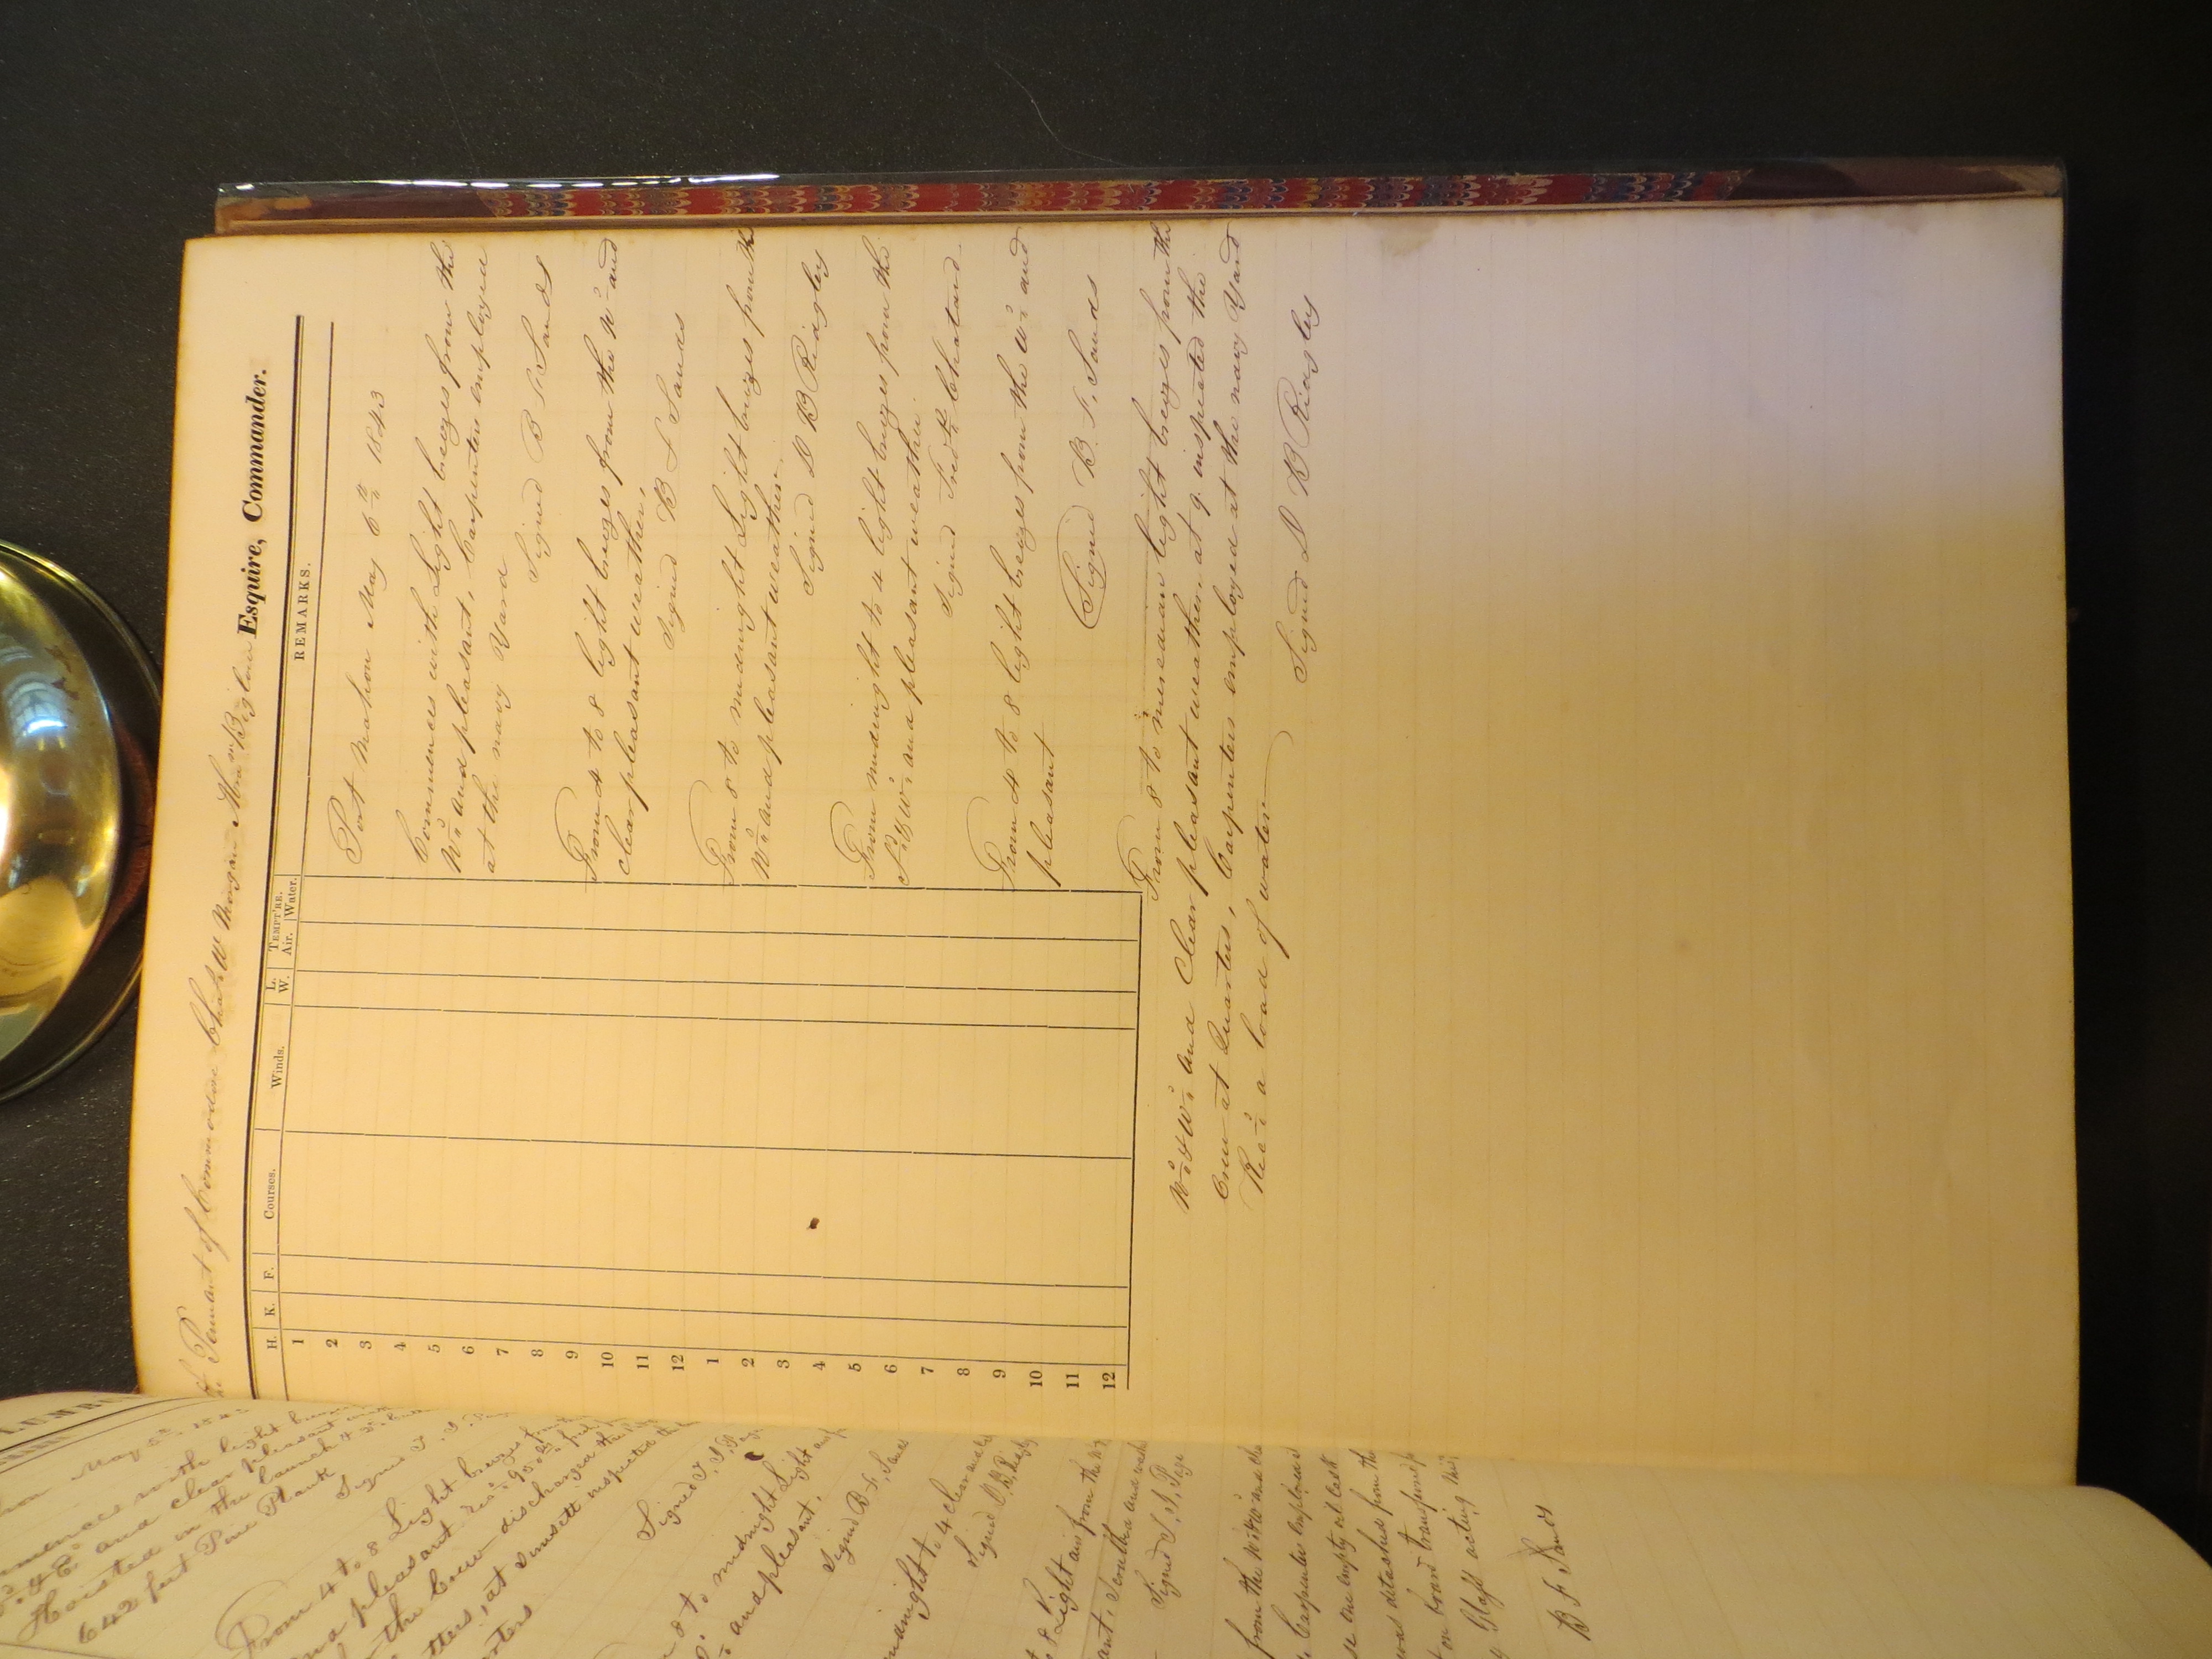 Pennant of Commodore Chas W Morgan Abrm Bigelow Esquire, Commander.
H. K. F. Courses. Winds. L. W. TEMPT'RE. Air. Water. REMARKS.
1
2
3
4
5
6
7
8
9
10
11
12
1
2
3
4
5
6
7
8
9
10
11
12
Port Mahon May 6th 1843
Commences with Light breezes from the
Nd and pleasant, Carpenters employed
at the navy Yard
Signed B F Sands
From 4 to 8 light breezes from the Nd and
clear pleasant weather,
Signed B F Sands
From 8 to midnight Light breezes from the
Nd and pleasant weather.
Signed D B Ridgley
From midnight to 4 light breezes from the
Sd & Wd and pleasant weather.
Signed Fredk Chatard
From 4 to 8 light breezes from the Wd and
pleasant
Signed B. F. Sands
From 8 to meredian light breezes from the
Nd & Wd and Clear pleasant weather. at 9. inspected the
Crew at Quarters, Carpenters employed at the navy Yard
Recd a load of water
Signed D B Ridgley
May 5th
with light
and clear pleasant
Hoisted in the Launch
642 feet Pine Plank
Signed
From 4 to 8 Light breezes
and pleasant
the Crew discharged
at Sunsett inspected
Signed
8 to midnight Light
and pleasant,
Signed B. F. Sands
midnight to 4 clear
Signed D. B. Ridgley
8 Light airs from the
Signed
from the Nd & Wd and
Carpenters employed
one empty oil cask
was detached from the
on board transferred
acting
B F Sands